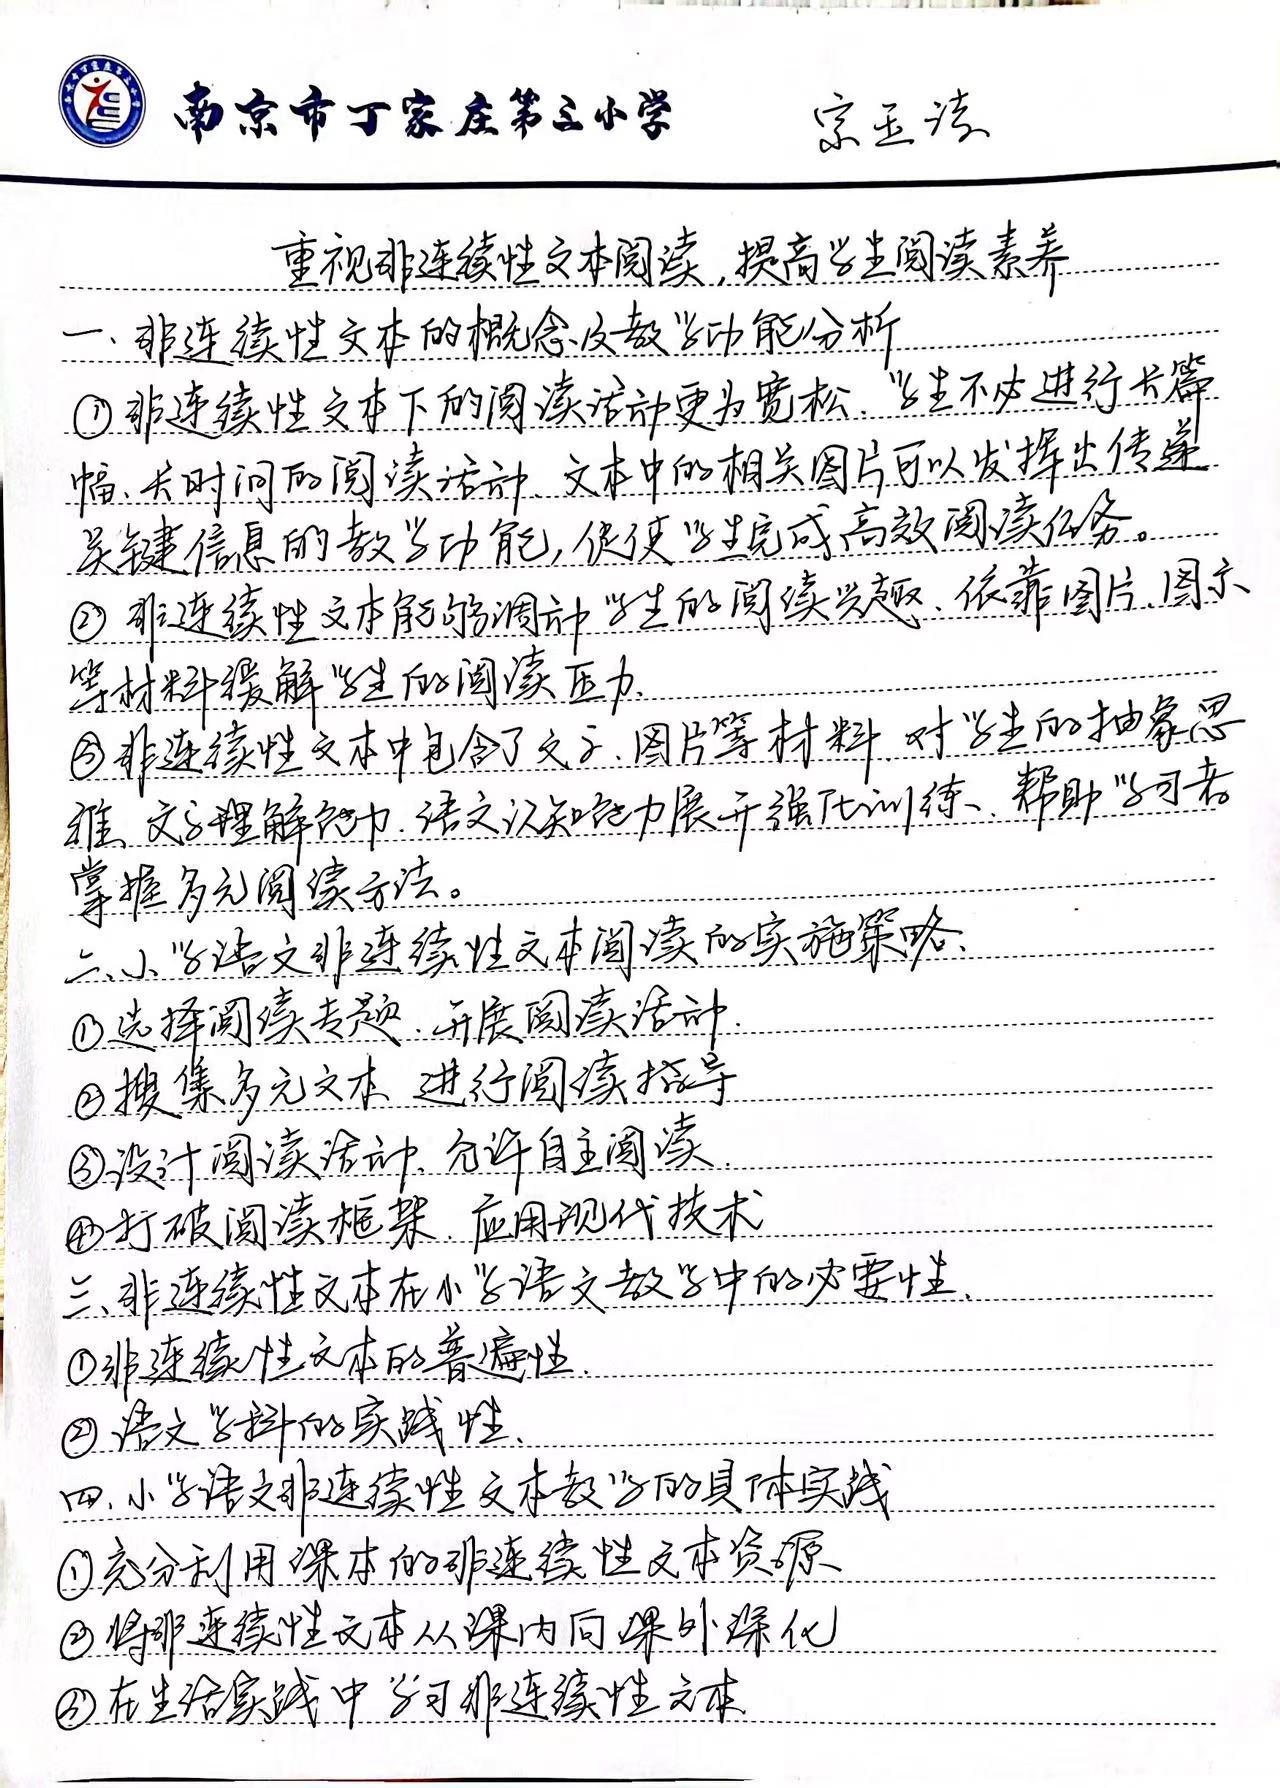 南京市丁家庄第三小学
宗玉
重视非连续性文本阅读，提高学生阅读素养
一、非连续性文本的概念及教学功能分析
①非连续性文本下的阅读活动更为宽松、学生不必进行长篇
幅、长时间的阅读活动、文本中的相关图片可以发挥出传递
关键信息的教学功能，促使学生完成高效阅读任务。
②非连续性文本能够调动学生的阅读兴趣、依靠图片、图示
等材料缓解学生的阅读压力、
③非连续性文本中包含了文字、图片等材料、对学生的抽象思
维、文字理解能力、语文认知能力展开强化训练、帮助学习者
掌握多元阅读方法。
二、小学语文非连续性文本阅读的实施策略、
①选择阅读专题、开展阅读活动、
②搜集多元文本、进行阅读指导
③设计阅读活动、允许自主阅读、
④打破阅读框架、应用现代技术
三、非连续性文本在小学语文教学中的必要性、
①非连续性文本的普遍性、
②语文学科的实践性、
四、小学语文非连续性文本教学的具体实践
①充分利用课本的非连续性文本资源
②将非连续性文本从课内向课外深化
③在生活实践中学习非连续性文本